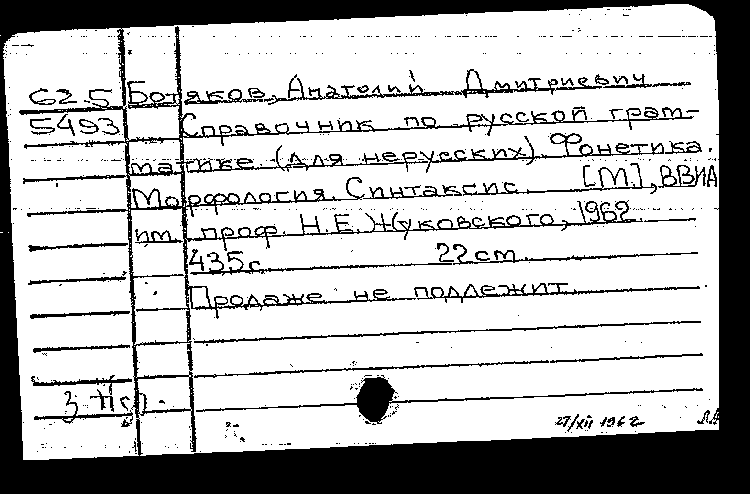 62.5 Ботяков, Анатолий Дмитриевич
5493 Справочник по русской грам-
матике (для нерусских). Фонетика.
Морфология. Синтаксис. [М.], ВВИА
им. проф. Н.Е. Жуковского, 1962.
435с. 22cm
Продаже не подлежит.
27/XII 1962